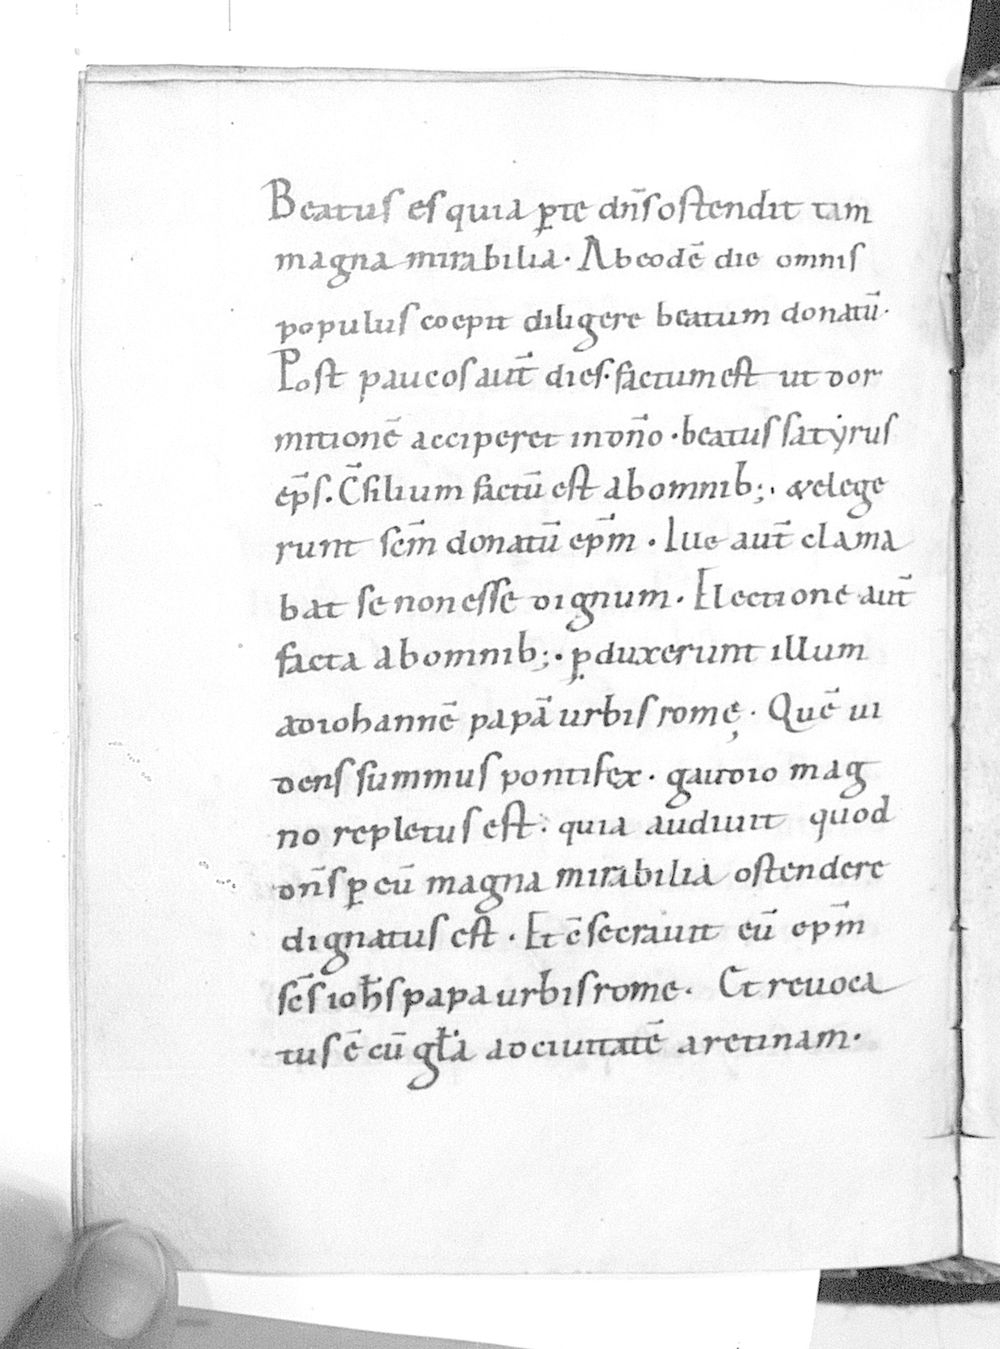 Beatus es quia ꝑ te dn̄s ostendit tam
magna mirabilia · Ab eodē die omnis
populus coepit diligere beatum donatū ·
Post paucos aut̄ dies · factum est ut dor
mitionē acciperet in dn̄o · beatus satẏrus
ep̄s · C̄silium factū est ab omnib; · & elege
runt sc̄m donatū ep̄m · Ille aut̄ clama
bat se non esse dignum · Electione aut̄
facta ab omnib; · ꝑduxerunt illum
ad iohannē papā urbis romę · Quē ui
dens summus pontifex · gaudio mag
no repletus est · quia audiuit quod
dn̄s ꝑ eū magna mirabilia ostendere
dignatus est · Et c̄secrauit eū ep̄m
sc̄s ioħs papa urbis rome · Et reuoca
tus ē cū gła ad ciuitatē aretinam ·